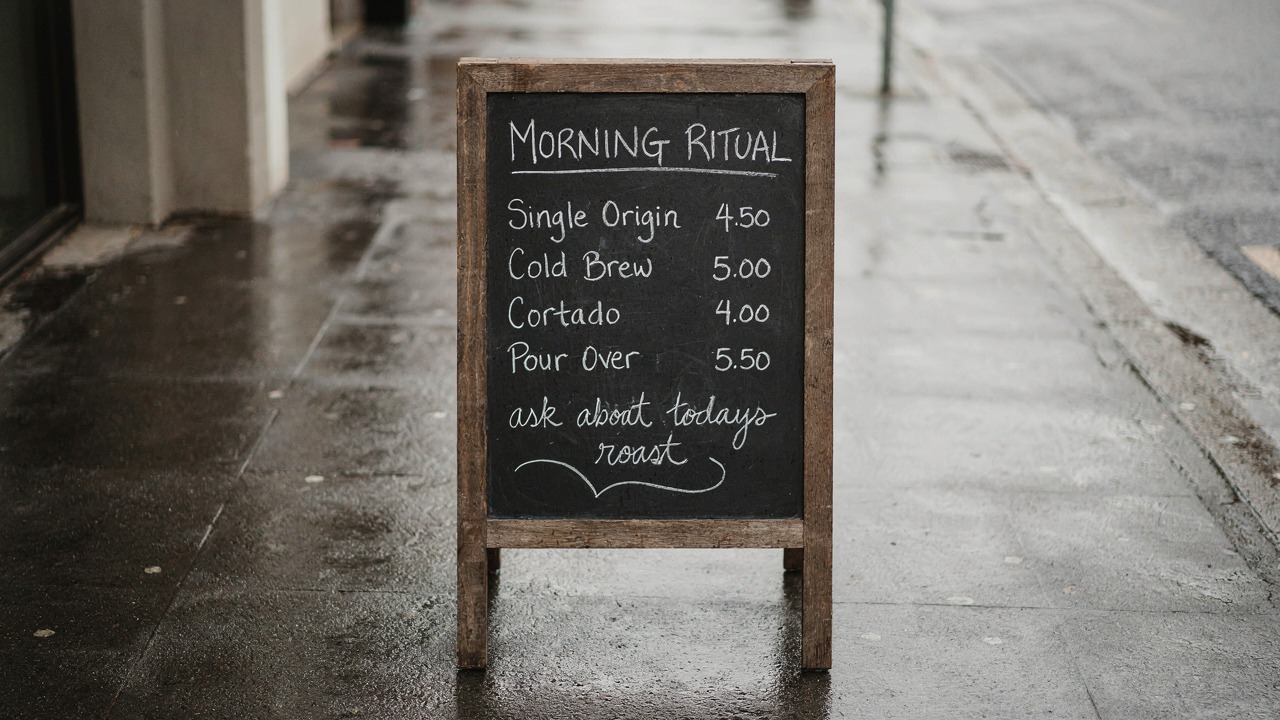 MORNING RITUAL
Single Origin 4.50
Cold Brew 5.00
Cortado 4.00
Pour Over 5.50
ask about todays
roast